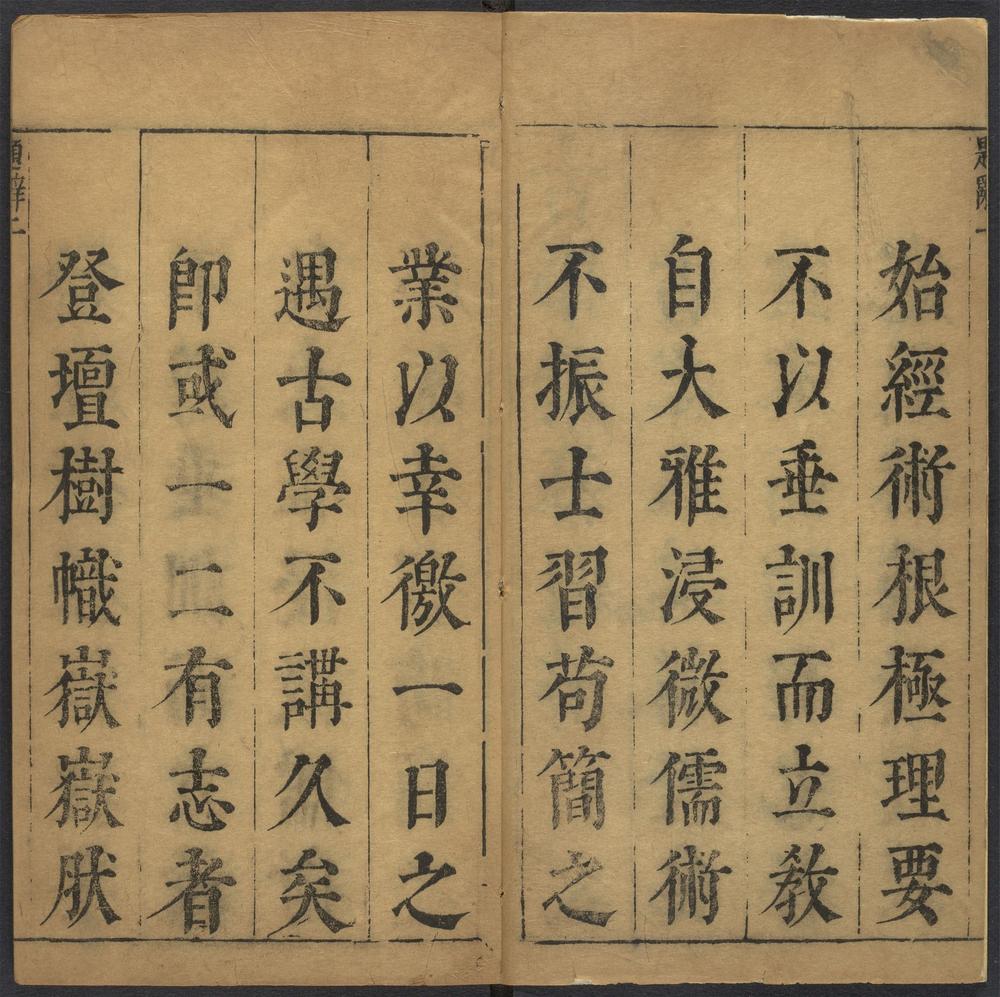 題辭一
始經術根極理要
不以垂訓而立教
自大雅浸微儒術
不振士習苟簡之
業以幸徼一日之
遇古學不講久矣
即或一二有志者
登壇樹幟嶽嶽肰
題辭二